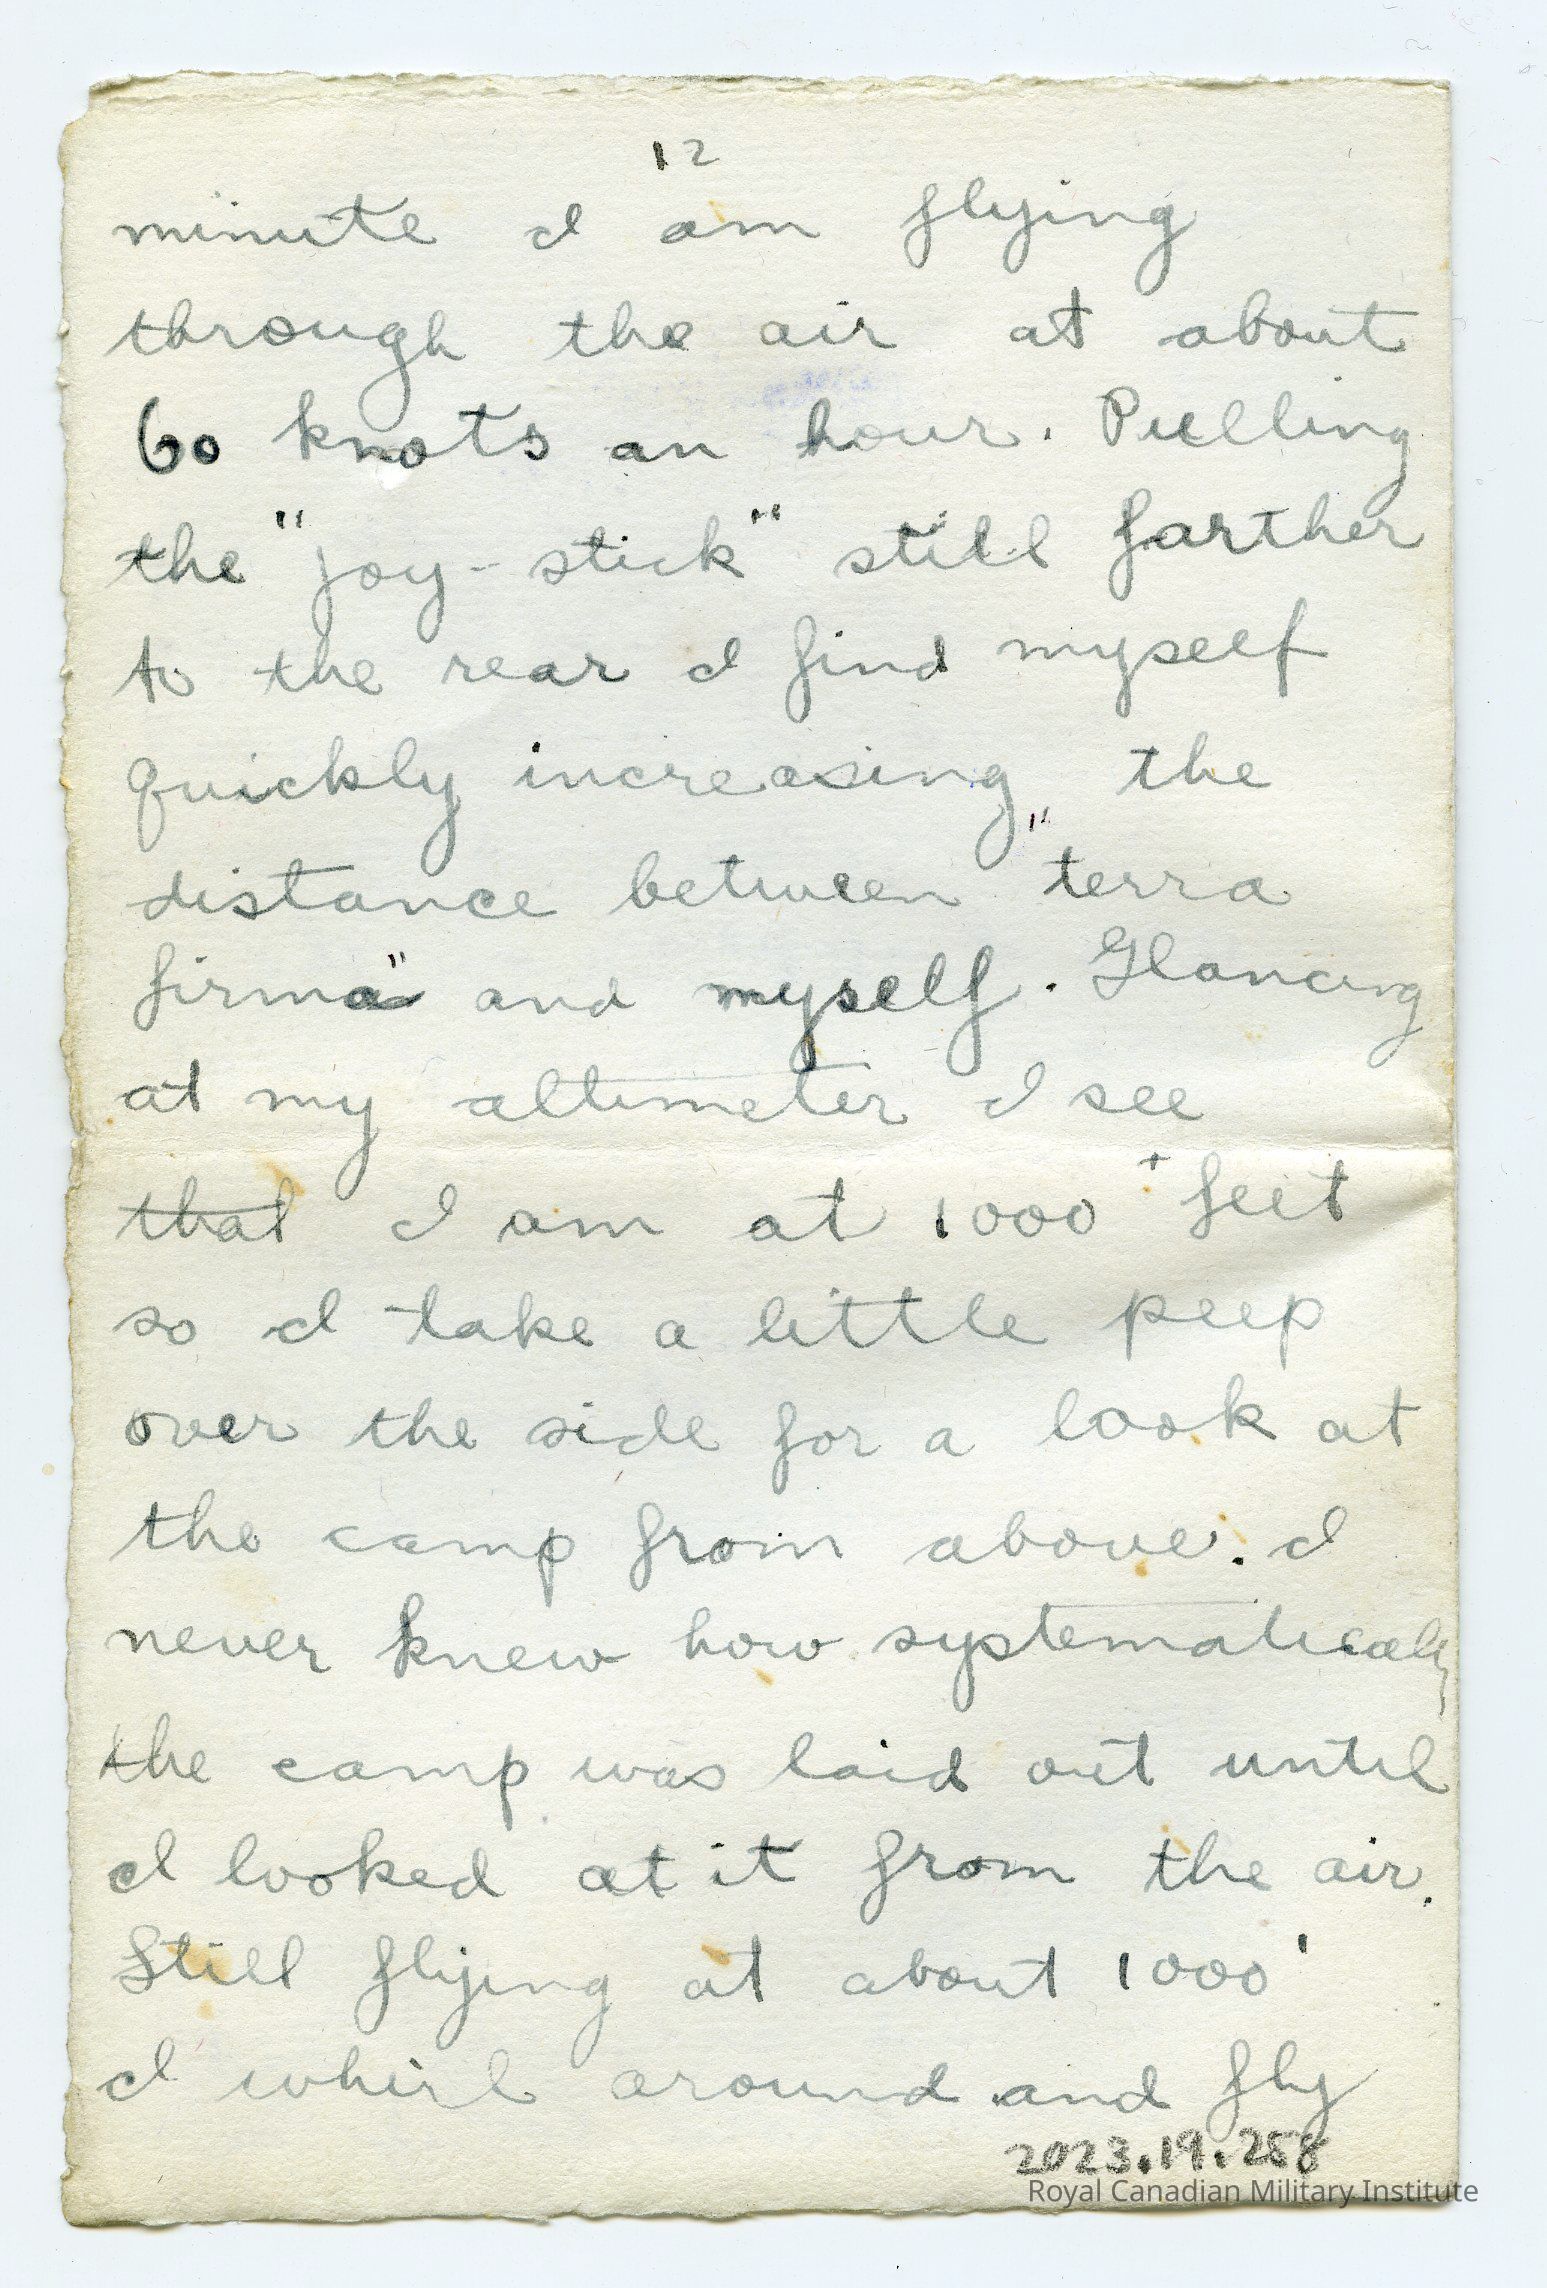 12
minute I am flying
through the air at about
60 knots an hour. Pulling
the "joy-stick" still farther
to the rear I find myself
quickly increasing the
distance between "terra
firma" and myself. Glancing
at my altimeter I see
that I am at 1000 + feet
so I take a little peep
over the side for a look at
the camp from above. I
never knew how systematically
the camp was laid out until
I looked at it from the air.
Still flying at about 1000'
I whirl around and fly
2023.19.258
Royal Canadian Military Institute